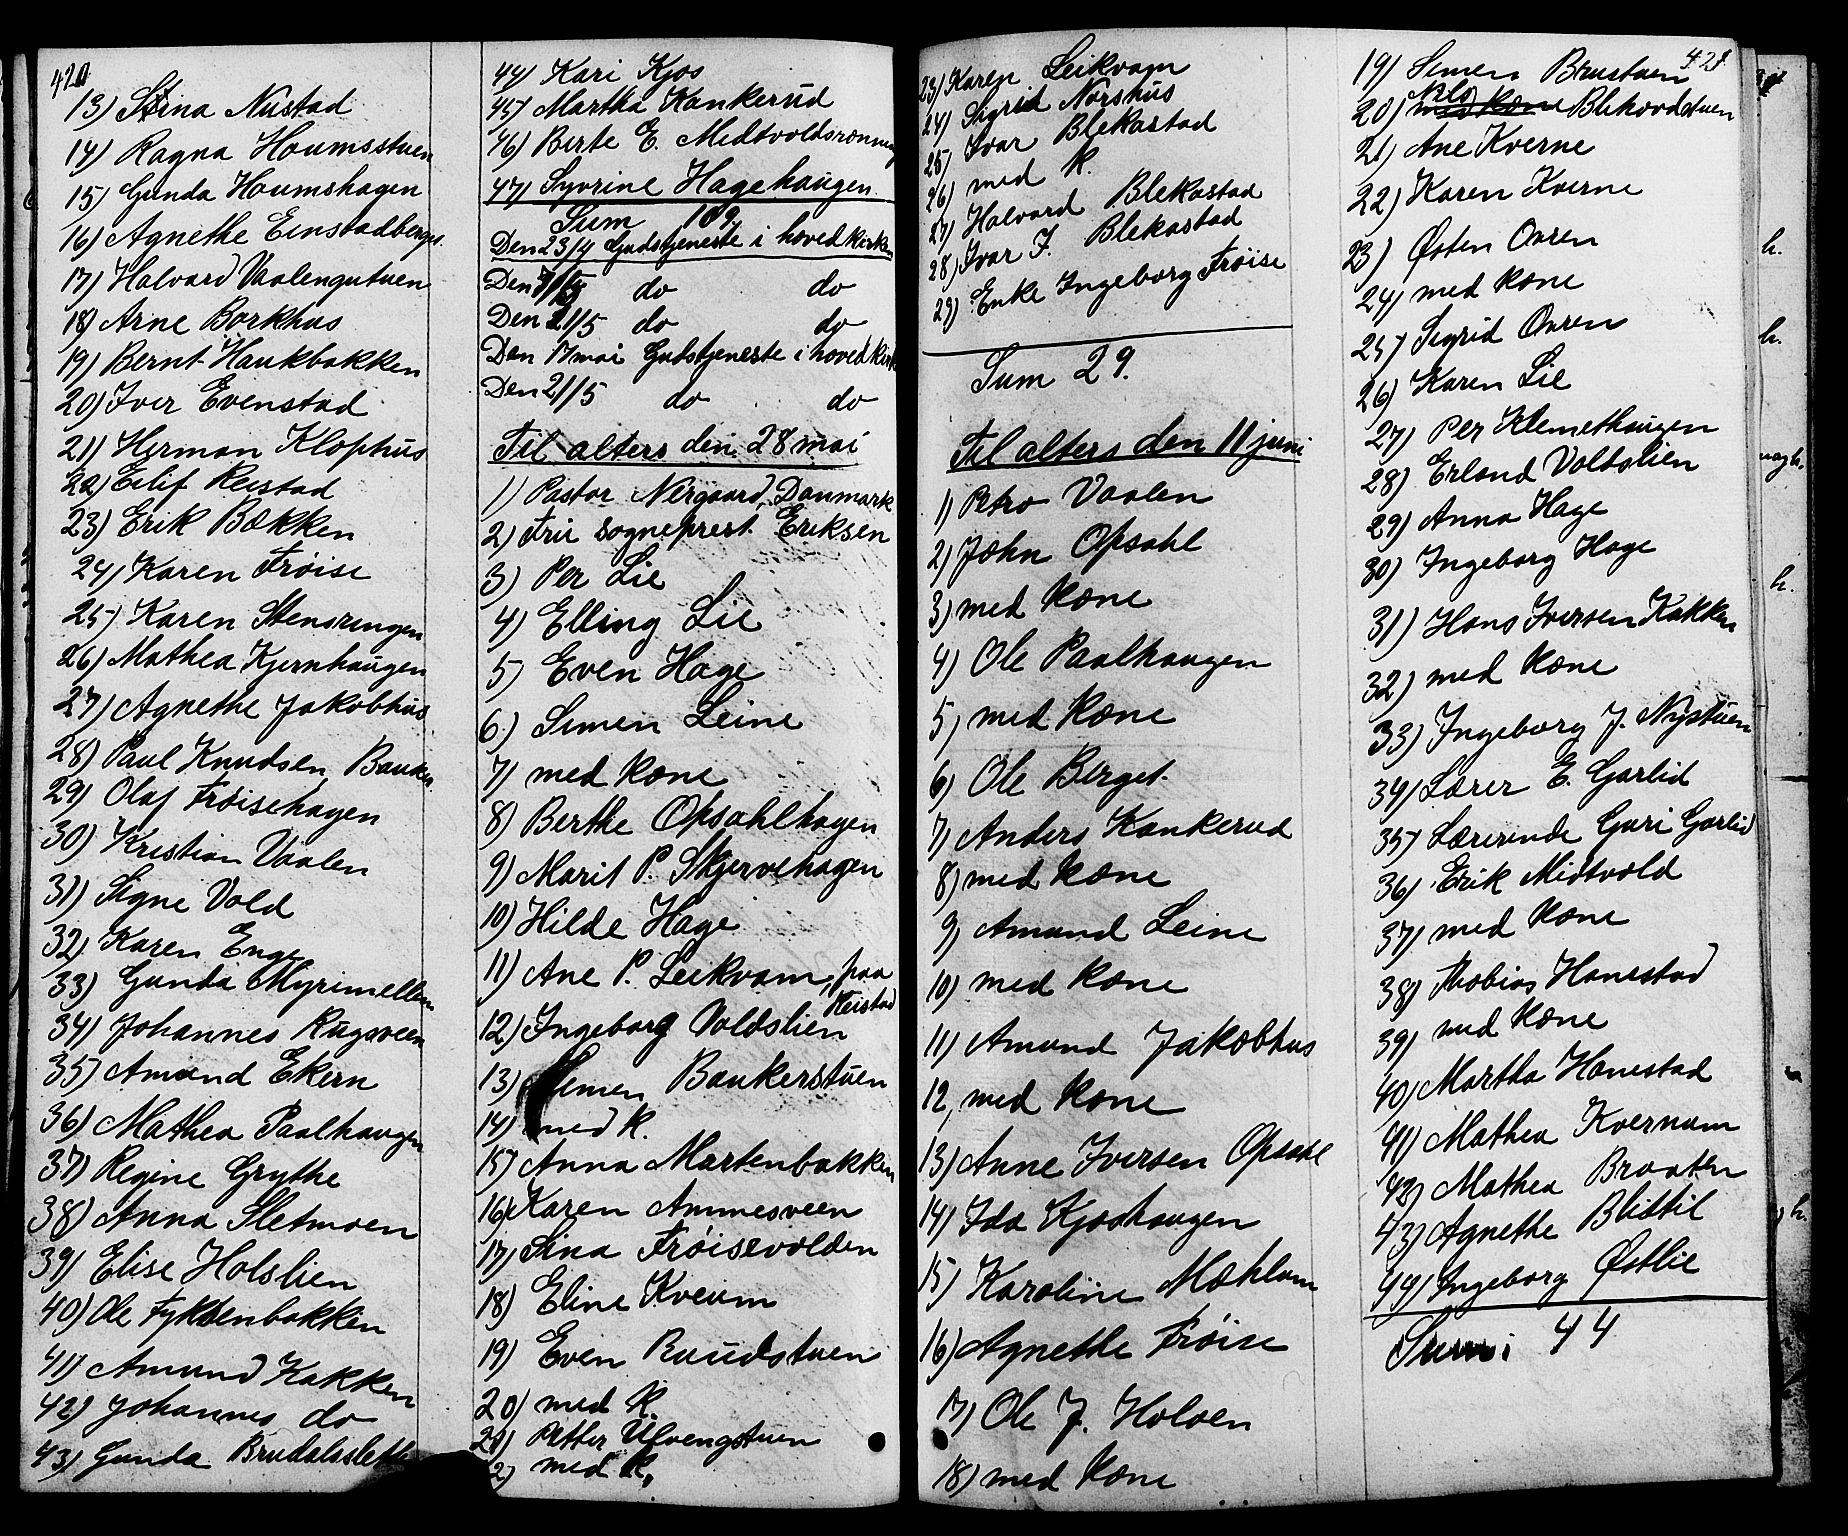 420
13) Stina Nustad
14) Ragna Houmsstuen
15) Gunda Houmshagen
16) Agnethe Einstadberget
17) Halvard Vaalengutuen
18) Arne Borkhus
19) Bernt Haukbakken
20) Iver Evenstad
21) Herman Klophus
22) Eilif Reistad
23) Erik Bækken
24) Karen Frøise
25) Karen Stensringen
26) Mathea Kjernhaugen
27) Agnethe Jakobhus
28) Paul Knudsen Bauker
29) Olaf Frøisehagen
30) Kristian Vaalen
31) Signe Vold
32) Karen Enge
33) Gunda Myrimellem
34) Johannes Rugsveen
35) Amund Ekern
36) Mathea Paalhaugen
37) Regine Grythe
38) Anna Sletmoen
39) Elise Holslien
40) Ole Tyksenbakken
41) Amund Kakken
42) Johannes do
43) Gunda Brudalsslette
44) Kari Kjos
45) Martha Kankerud
46) Berte E. Medtvoldsrønning
47) Syvrine Hagehaugen
Sum 109
Den 23/4 Gudstjeneste i hovedkirken
Den 7/5 do do
Den 21/5 do do
Den 17 mai Gudstjeneste i hovedkirk
Den 21/5 do do
Til alters den 28 mai
1) Pastor Nergaard, Danmark
2) Fru sogneprest Eriksen
3) Per Lie
4) Elling Lie
5) Even Hage
6) Simen Leine
7) med kone
8) Berthe Opsahlhagen
9) Marit P. Skjervehagen
10) Hilde Hage
11) Ane P. Leikvam, paa
Reistad
12) Ingeborg Voldslien
13) Simen Baukerstuen
14) med k.
15) Anna Martenbakken
16) Karen Ammesveen
17) Sina Frøisevolden
18) Eline Kveum
19) Even Ruudstuen
20) med k.
21) Petter Ulvengstuen
2) med k.
421
23) Karen Leikvam
24) Sigrid Norshus
25) Ivar Blekastad
26) med k.
27) Halvard Blekastad
28) Ivar I. Blekastad
29) Enke Ingeborg Frøise
Sum 29.
Til alters den 11 juni
1) Petra Vaalen
2) John Opsahl
3) med kone
4) Ole Paalhaugen
5) med kone
6) Ole Berget
7) Anders Kankerud
8) med kone
9) Amund Leine
10) med kone
11) Amund Jakobhus
12, med kone
13) Anne Iversen Opsahl
14) Ida Kjoshaugen
15) Karoline Mæhlum
16) Agnethe Frøise
17) Ole J. Holoen
18) med kone
19) Simen Brustuen
20) med kone Blehovdstuen
21) Ane Kverne
22) Karen Kverne
23) Østen Ovren
24) med kone
25) Sigrid Ovren
26) Karen Lie
27) Per Klemethaugen
28) Erland Voldslien
29) Anna Hage
30) Ingeborg Hage
31) Hans Iversen Kakken
32) med kone
33) Ingeborg J. Nystuen
34) Lærer E. Garlid
35) Lærerinde Guri Garlid
36) Erik Midtvold
37) med kone
38) Thobias Hanestad
39) med kone
40) Martha Hanestad
41) Mathea Kvernum
42) Mathea Braaten
43) Agnethe Blistil
44) Ingeborg Østlie
Sum: 44